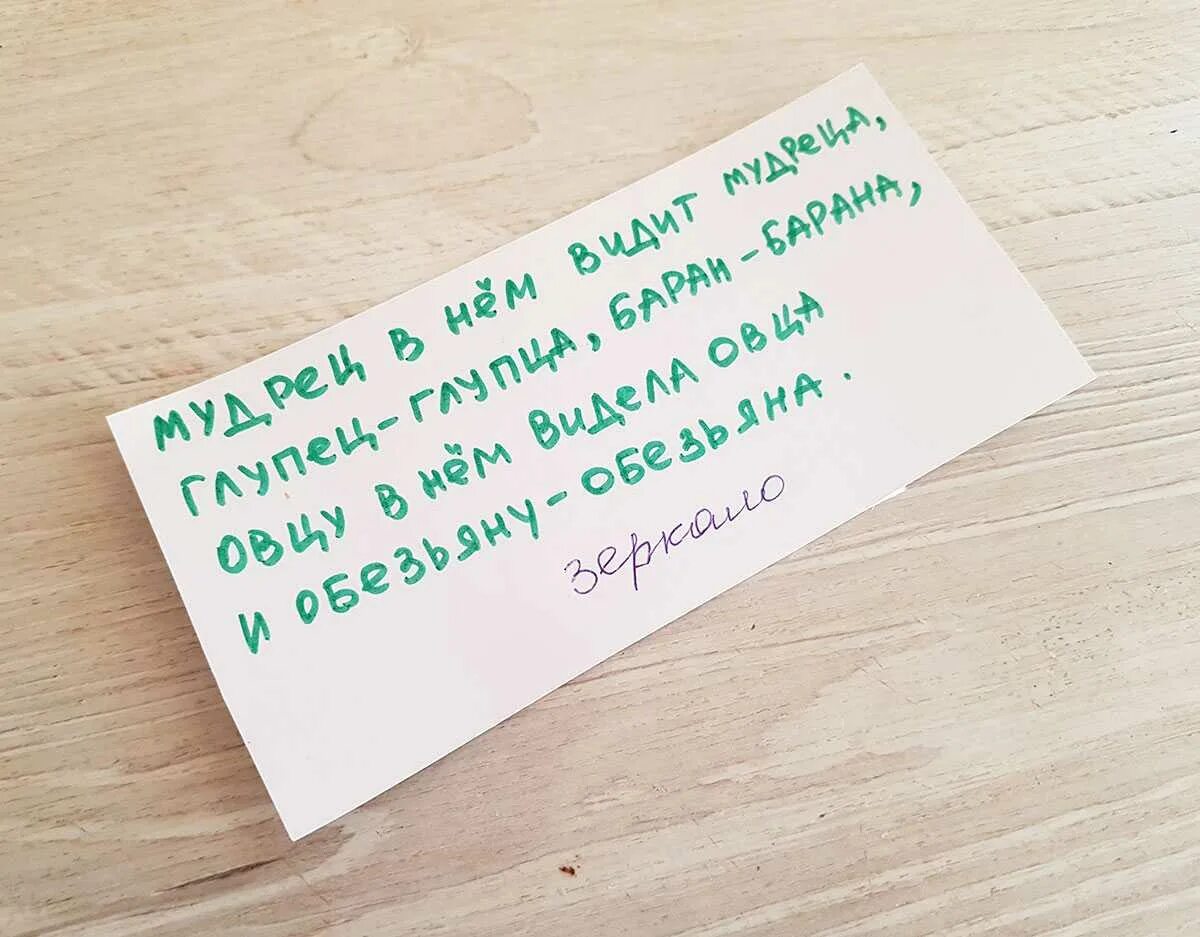 МУДРЕЦ В НЁМ ВИДИТ МУДРЕЦА,
ГЛУПЕЦ-ГЛУПЦА, БАРАН-БАРАНА,
ОВЦУ В НЁМ ВИДЕЛА ОВЦА
И ОБЕЗЬЯНУ-ОБЕЗЬЯНА.
зеркало